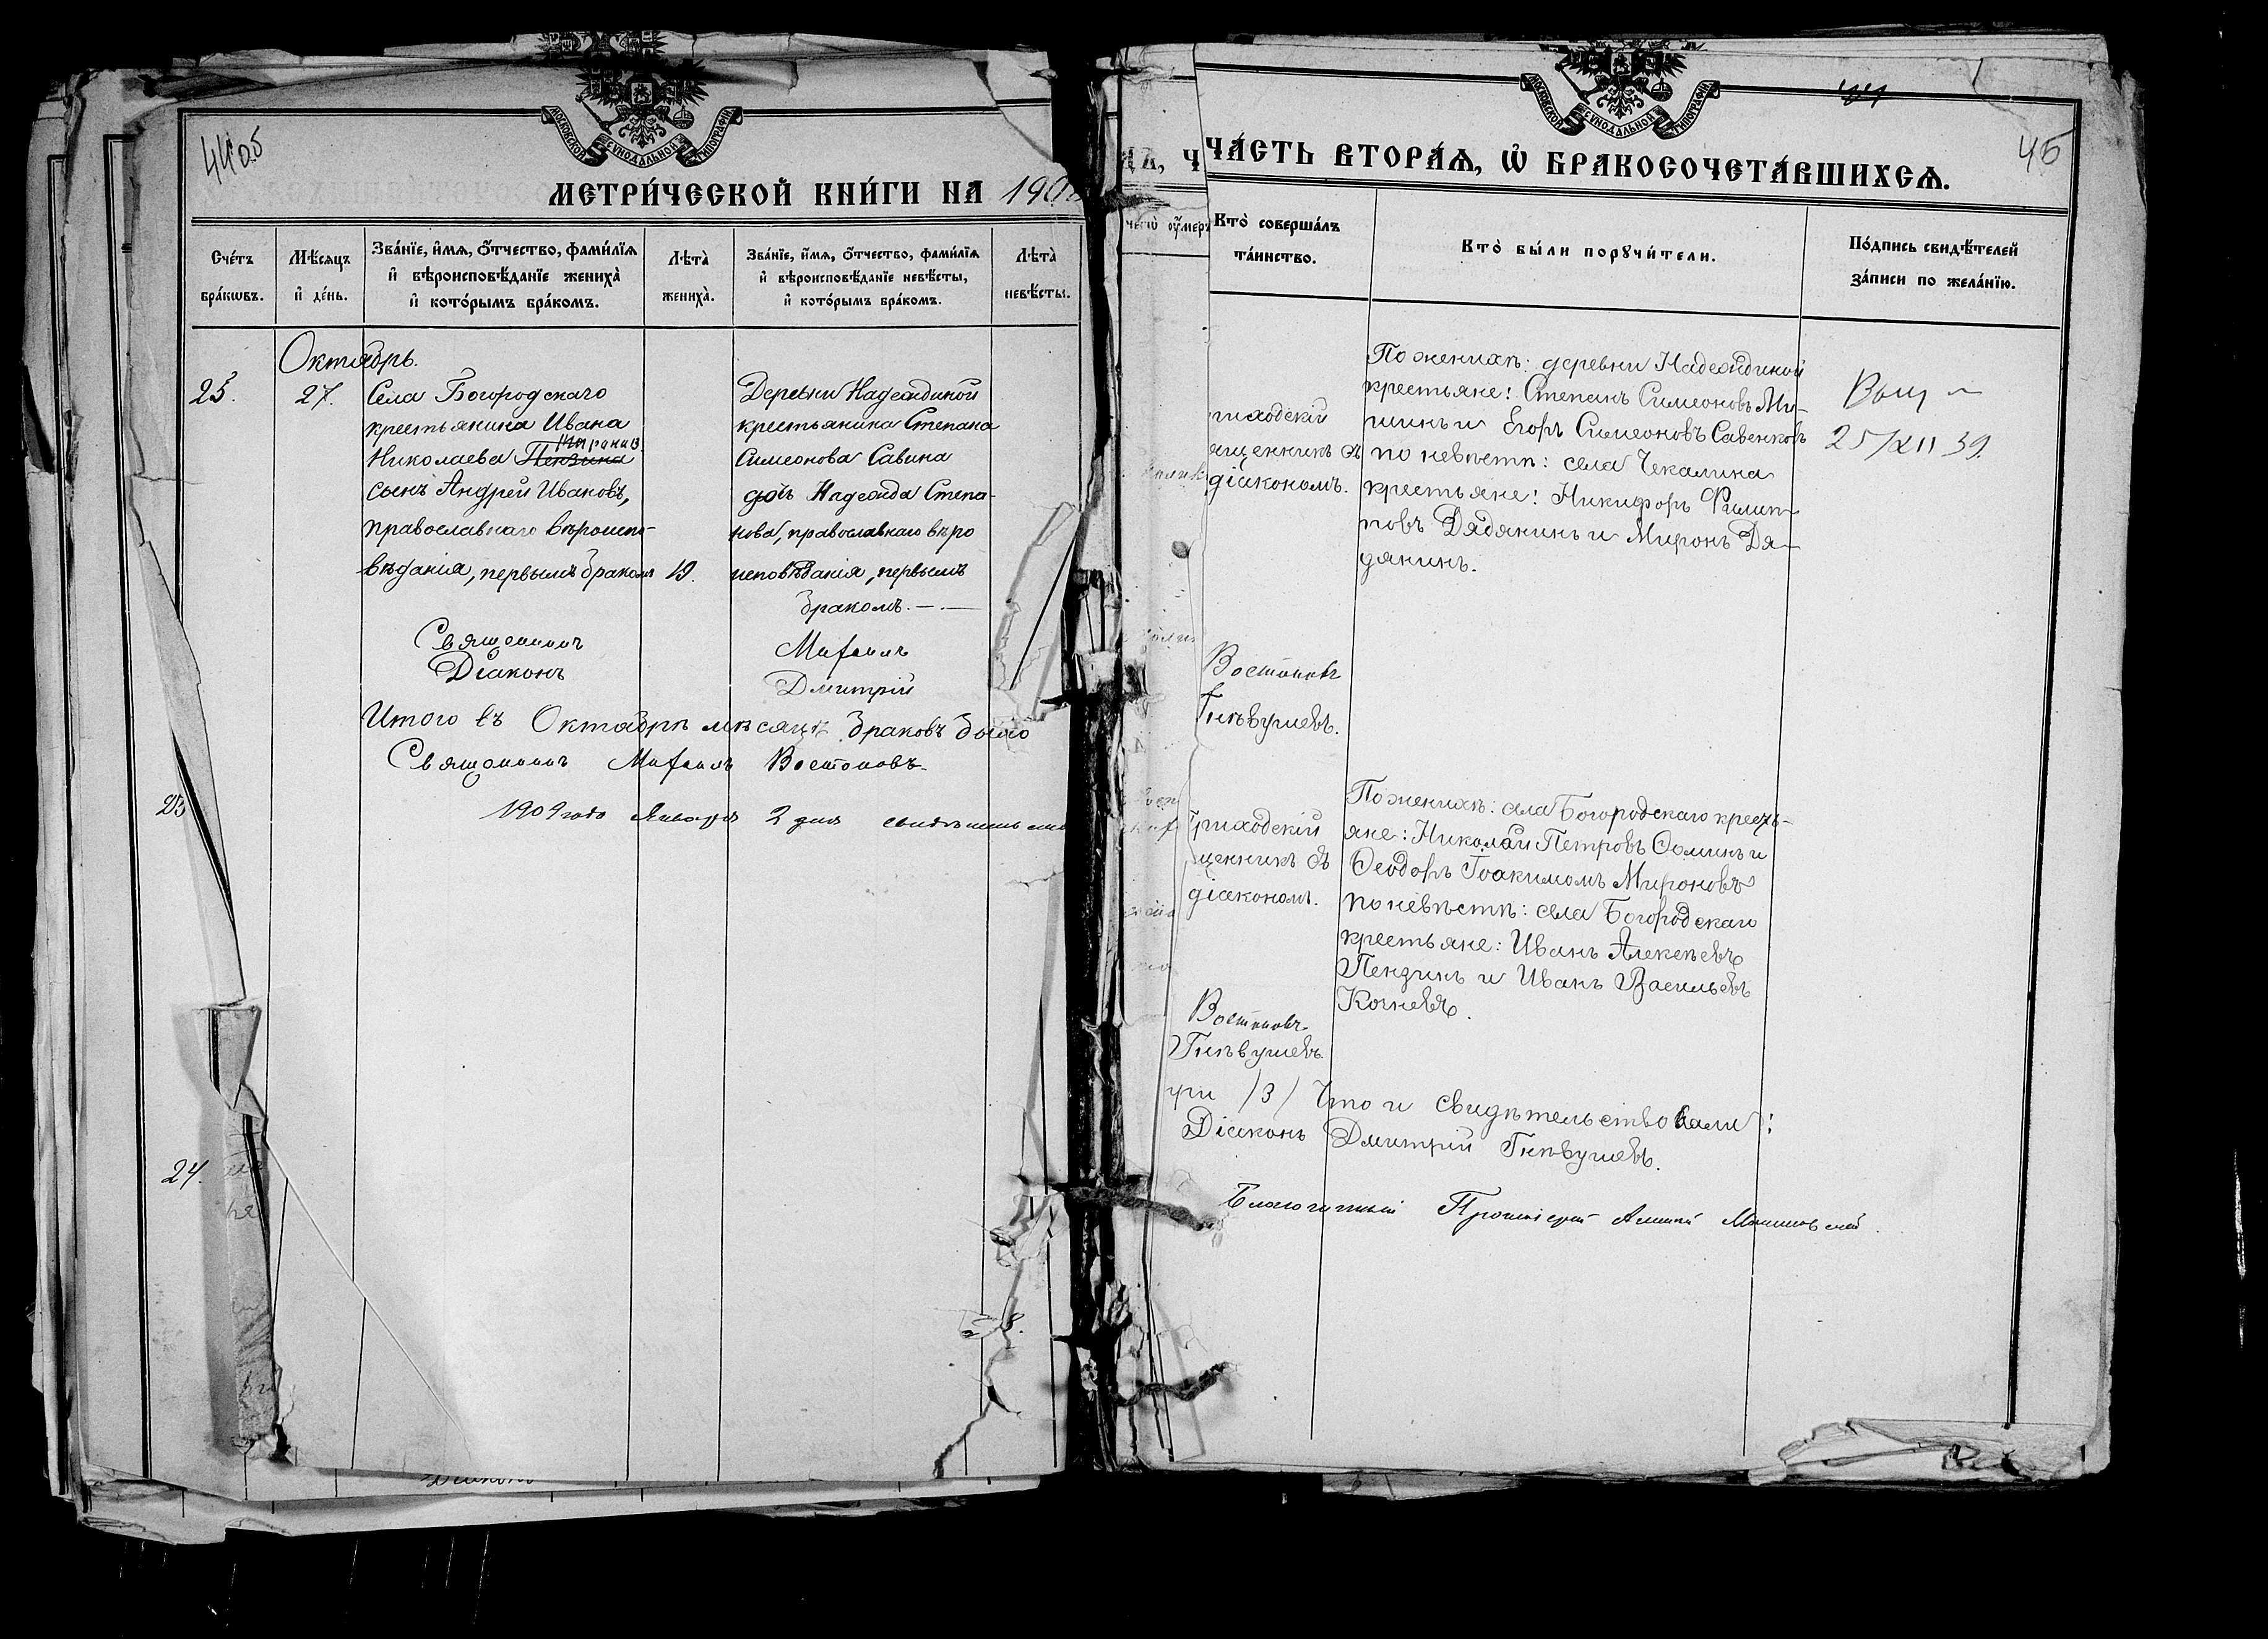 МОСКОВСКОЙ СѴНОДАЛЬНОЙ ТИПОГРАФІИ
МЕТРИ́ЧЕСКОЙ КНИ́ГИ НА 190
Сче́тъ бра́кѡвъ.
Мѣ́сяцъ и҆ де́нь.
Зва́нїе, и҆́мѧ, ѻ҆́тчество, фами́лїѧ и҆ вѣроисповѣ́данїе жениха̀ и҆ кото́рымъ бра́комъ.
Лѣ́та жениха̀.
Зва́нїе, и҆́мѧ, ѻ҆́тчество, фами́лїѧ и҆ вѣроисповѣ́данїе невѣ́сты, и҆ кото́рымъ бра́комъ.
Лѣ́та невѣ́сты.
Октябрь.
25.
27.
Села Богородскаго
крестьянина Ивана
Николаева Пензина
сынъ Андрей Ивановъ,
православнаго вѣроиспо-
вѣданія, первымъ бракомъ
19.
Деревни Надеждиной
крестьянина Степана
Симеонова Савина
дочь Надежда Степа-
нова, православнаго вѣро
исповѣданія, первымъ
бракомъ.
Священникъ Михаилъ
Діаконъ Дмитрій
Итого въ Октябрѣ мѣсяцѣ браковъ было
Священникъ Михаилъ Востоковъ.
23
1909 года Января 2 дня
24.
МОСКОВСКОЙ СѴНОДАЛЬНОЙ ТИПОГРАФІИ
45
ЧА́СТЬ ВТОРА́Ѧ, Ѽ БРАКОСОЧЕТА́ВШИХСѦ.
Кто̀ соверша́лъ та́инство.
Кто̀ бы́ли порꙋчи́тели.
По́дпись свидѣ́телей за́писи по жела́нїю.
приходскій
діакономъ.
По женихѣ: деревни Надеждиной
крестьяне: Степанъ Симеоновъ Ми-
шинъ и Егоръ Симеоновъ Савенковъ
по невѣстѣ: села Чекалина
крестьяне: Никифоръ Филип-
повъ Дядянинъ и Миронъ Дя-
дянинъ.
25/XII 39.
Востоковъ
Гнѣвушевъ.
приходскій
щенникъ съ
діакономъ.
По женихѣ: села Богородскаго кресть-
яне: Николай Петровъ Ѳоминъ и
Ѳеодоръ Іоакимомъ Мироновъ
по невѣстѣ: села Богородскаго
крестьяне: Иванъ Алексѣевъ
Пензинъ и Иванъ Васильевъ
Кочневъ.
Востоковъ
Гнѣвушевъ.
три /3/ Что и свидѣтельствовали:
Діаконъ Дмитрій Гнѣвушевъ.
Благочинный Протоіерей